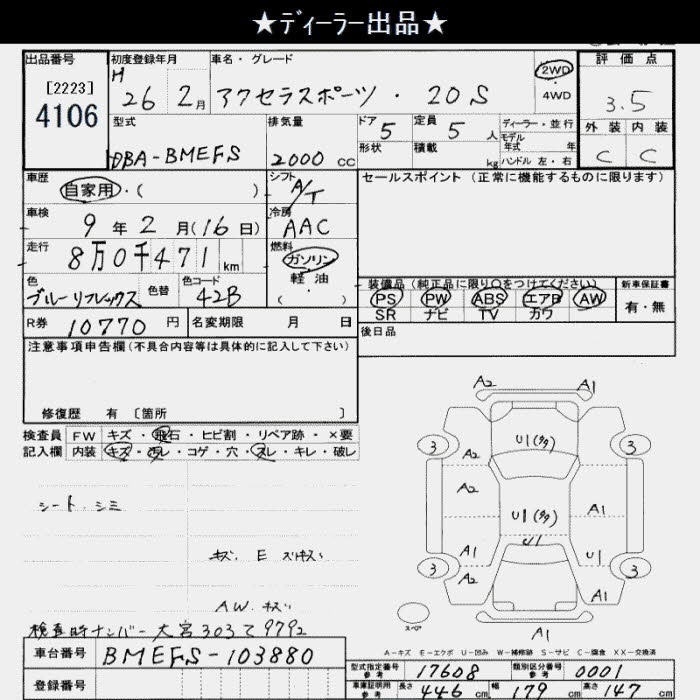 ★ディーラー出品★
出品番号
[2223]
4106
初度登録年月
H 26 2月
車名・グレード
アクセラスポーツ・20S
2WD
4WD
評価点
3.5
外装 内装
C C
型式
DBA-BMEFS
排気量
2000 cc
ドア 5
形状
定員 5 人
積載 kg
ディーラー・並行
モデル
年式 年
ハンドル 左・右
車歴
自家用・( )
シフト
A/T
車検
9年2月(16日)
冷房
AAC
走行
8万0千471km
燃料
ガソリン
軽油
( )
色
ブルーリフレックス
色替
色コード
42B
R券 10770円
名変期限 月 日
セールスポイント (正常に機能するものに限ります)
装備品(純正品に限り○をつけてください)
PS PW ABS エアB AW
SR ナビ TV カワ
新車保証書
有・無
後日品
注意事項申告欄(不具合内容等は具体的に記入して下さい)
修復歴 有 〔箇所 〕
検査員
記入欄
FW キズ・飛石・ヒビ割・リペア跡・×要
内装 キズ・汚レ・コゲ・穴・スレ・キレ・破レ
シート・シミ
キズ. E スリキズ
AW. キズ
検査時ナンバー 大宮303て9792
車台番号 BMEFS-103880
登録番号
A2 A1
3 3
U1(多)
A2
A2
A1
U1(多)
U1
A1
U1
3 3
A2
A1
スペア
A1
A-キズ E-エクボ U-凹み W-補修跡 S-サビ C-腐食 XX-交換済
型式指定番号
参考
17608
類別区分番号
参考
0001
車庫証明用
参考
長さ 446 cm 幅 179 cm 高さ 147 cm